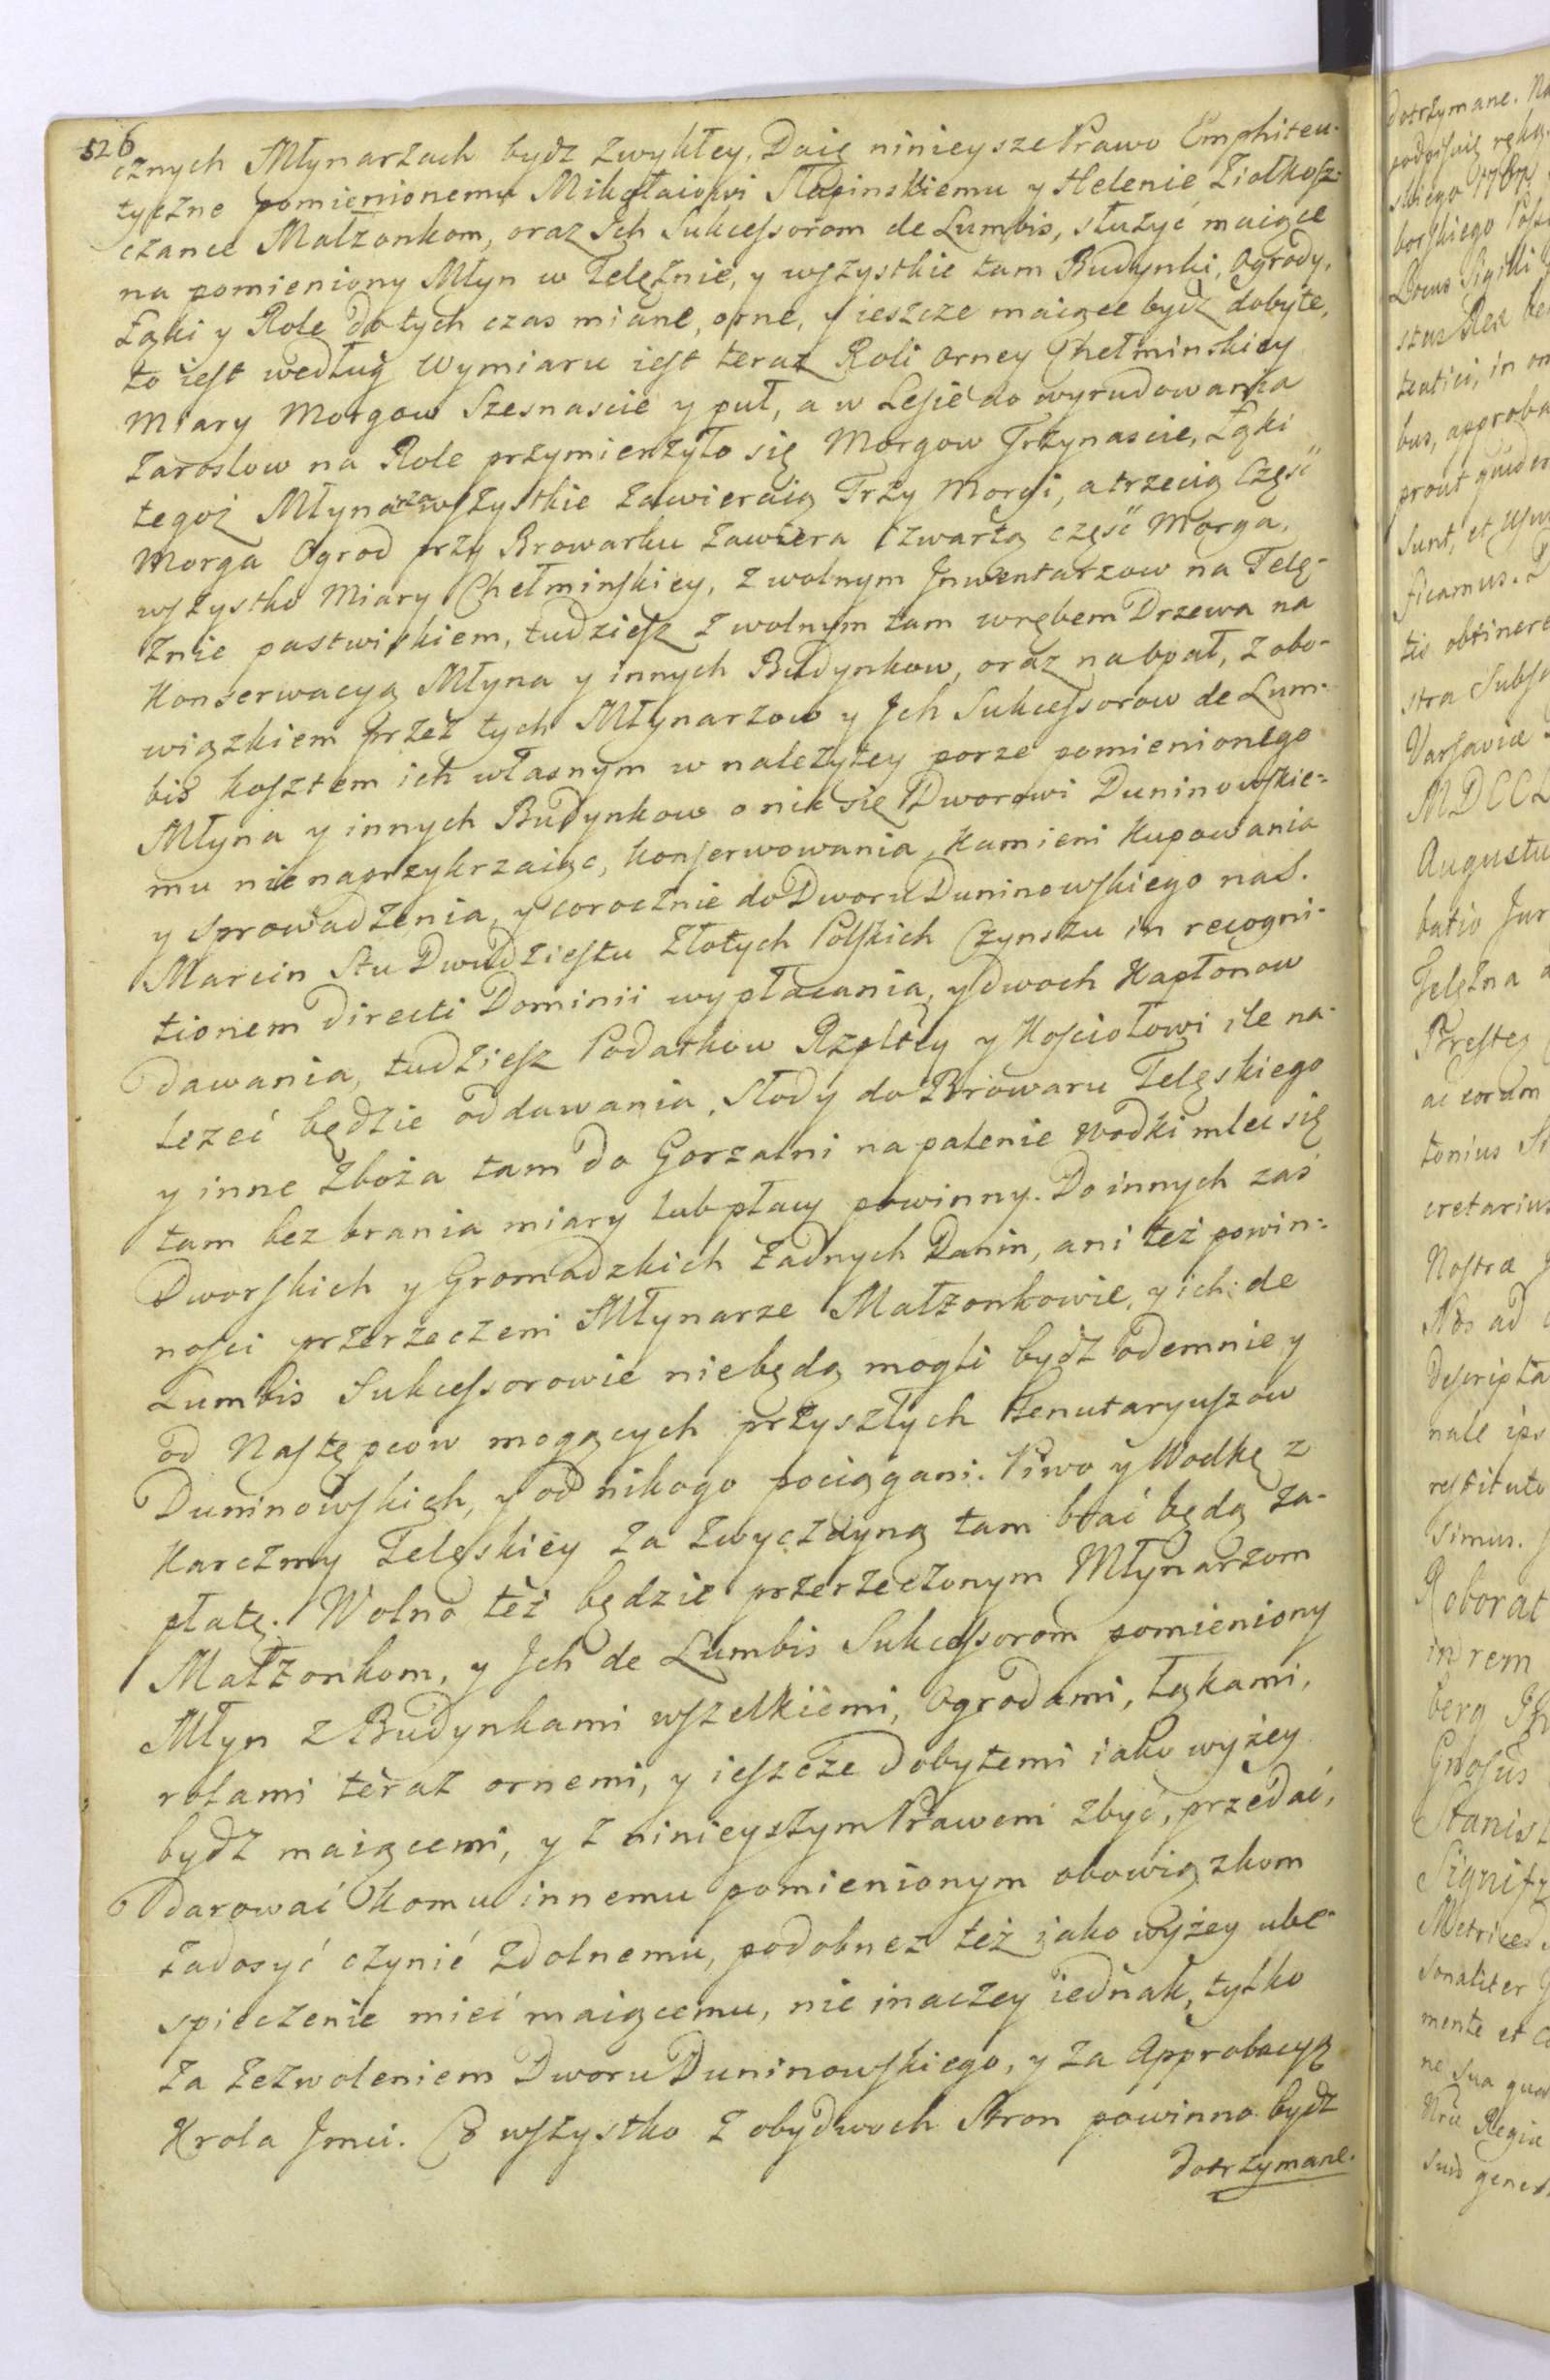 526
cznych Młynarzach bydz zwykłey, Daię ninieysze Prawo Emphiteu-
tyczne pomienionemu Mikołaiowi Słupinskiemu y Helenie Ziołkosz-
czance Małżonkom, oraz Ich Sukcessorom de Lumbis, służyć maiące
na pomieniony Młyn w Telężnie, y wszystkie tam Budynki, Ogrody,
Łąki y Role do tych czas miane, orne, y ieszcze maiące bydz dobyte,
to iest według Wymiaru iest teraz Roli orney Chełminskiey
Miary Morgow Szesnascie y puł, a w Lesie do wyrudowania
Zaroslow na Role przymierzyło się Morgow Trzynascie, Łąki
tegoż Młynarza wszystkie zawieraią Trzy Morgi, a trzecią Częsć
Morga Ogrod przy Browarku zawiera Czwartą częsć Morga,
wszystko Miary Chełminskiey, z wolnym Inwentarzow na Telę-
znie pastwiskiem, tudziesz z wolnym tam wrębem Drzewa na
Konserwacyą Młyna y innych Budynkow, oraz na opał, z obo-
wiązkiem przez tych Młynarzow y Ich Sukcessorow de Lum-
bis kosztem ich własnym w należytey porze pomienionego
Młyna y innych Budynkow o nic się Dworowi Duninowskie-
mu nienaprzykrzaiąc, konserwowania, Kamieni Kupowania
y sprowadzenia, y corocznie do Dworu Duninowskiego na S.
Marcin Stu Dwudziestu Złotych Polskich Czynszu in recogni-
tionem Directi Dominii wypłacania, y dwoch Kapłonow
dawania, tudziesz Podatkow Rzpltey y Kosciołowi ile na-
lezeć będzie oddawania, Słody do Browaru Telęskiego
y inne Zboża tam do Gorzalni na palenie Wodki mlec się
tam bez brania miary lub płacy powinny. Do innych zaś
Dworskich y Gromadzkich żadnych Danin, ani też powin-
nosci przerzeczeni Młynarze Małzonkowie, y ich de
Lumbis Sukcessorowie niebędą mogli bydz odemnie y
od Następcow mogących przyszłych Tenutaryuszow
Duninowskich, y od nikogo pociągani. Piwo y Wodkę z
Karczmy Telęskiey za zwyczayną tam brać będą za-
płatę. Wolno też będzie przerzeczonym Młynarzom
Małżonkom, y Ich de Lumbis Sukcessorom pomieniony
Młyn z Budynkami wszelkiemi, Ogrodami, Łąkami,
rolami teraz ornemi, y ieszcze dobytemi iako wyżey
bydz maiącemi, y z ninieyszym Prawem zbyć, przedać,
darować komu innemu pomienionym obowiązkom
zadosyć czynić zdolnemu, podobnez też iako wyżey ube-
spieczenie mieć maiącemu, nie inaczey iednak, tylko
za zezwoleniem Dworu Duninowskiego, y za Approbacyą
Krola Jmci. Co wszystko z obydwoch Stron powinno bydz
dotrzymane.
dotrzymane. Na
skiego 1787
borskiego
Locus Sigilli
tentici, in
bus, approba
prout quidem
sunt, et
ficamus.
tis obtinere
stra Subs
Varsaviæ
MDCCL
Augustu
batio Jur
Telężna
ac eorum
tonius
cretarius
Nostræ
Nos ad
descripta
nale ips
restituto
simus.
Roborat
in rem
berg
Gnosus
Stanisl
Signif
Metrices
sonaliter
mente et
ne sua
Regiæ